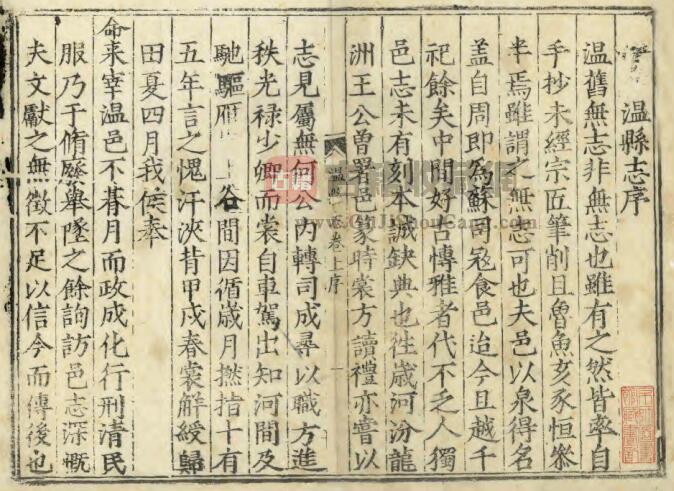 温縣志序
温舊無志非無志也雖有之然皆率自
手抄未經宗匠筆削且魯魚亥豕恒叅
半焉雖謂之無志可也夫邑以泉得名
盖自周即為蘇司冦食邑迨今且越千
祀餘矣中間好古愽雅者代不乏人獨
邑志未有刻本誠缺典也徃歲河汾龍
洲王公曽署邑篆時裳方讀禮亦嘗以
温縣 卷上序 一
志見屬無何公内轉司成尋以職方進
秩光禄少卿而裳自車駕出知河間及
馳驅雁 谷間因循歲月撚指十有
五年言之愧汗浹背甲戌春裳解綬歸
田夏四月我侯奉
命来宰温邑不朞月而政成化行刑清民
服乃于脩廢舉墜之餘詢訪邑志深慨
夫文獻之無徵不足以信今而傳後也
古籍
www.GujiShouCang.com